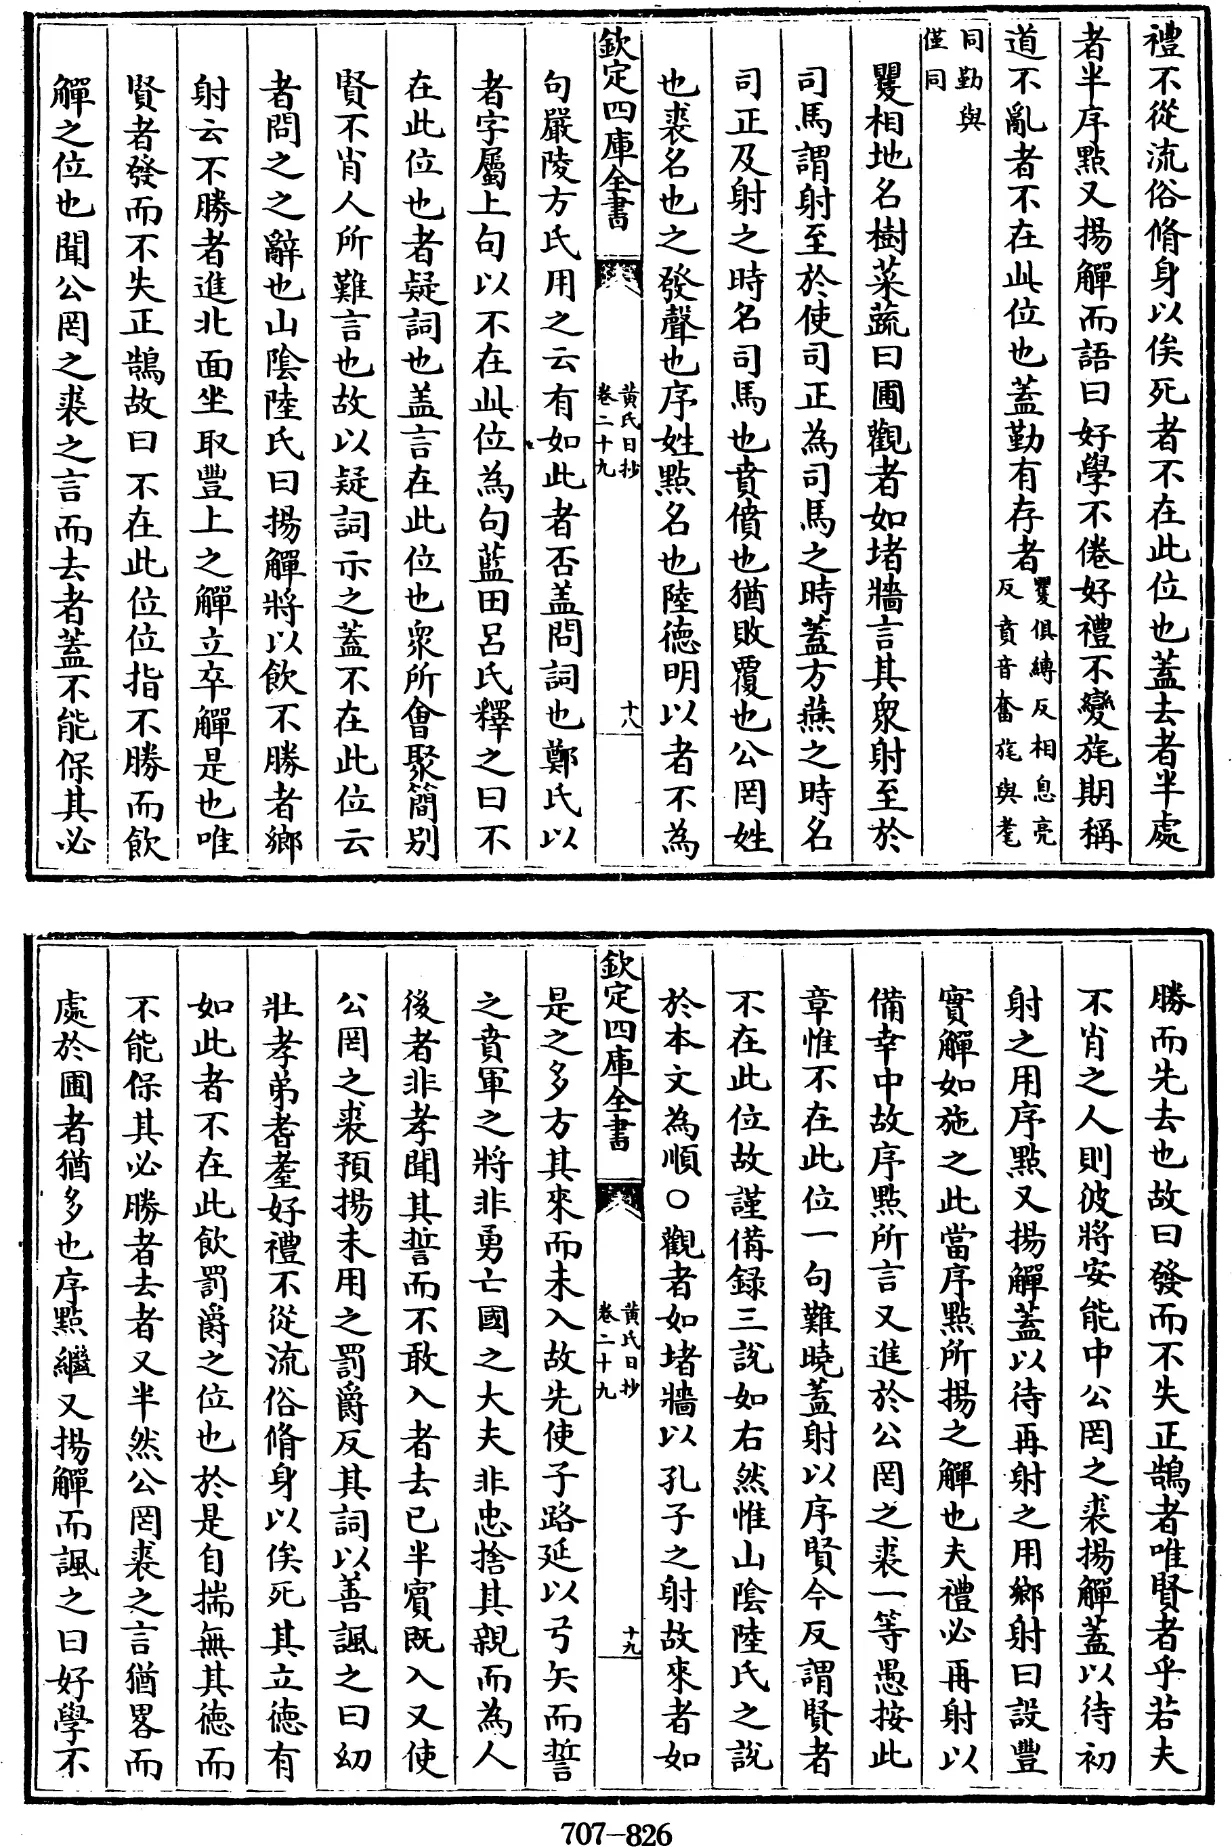 禮不從流俗脩身以俟死者不在此位也蓋去者半處
者半序點又揚觶而語曰好學不倦好禮不變旄期稱
道不亂者不在此位也蓋勤有存者矍俱縛反相息亮
反賁音奮旄與耄
同勤與
僅同
矍相地名樹菜蔬曰圃觀者如堵牆言其衆射至於
司馬謂射至於使司正為司馬之時蓋方燕之時名
司正及射之時名司馬也賁僨也猶敗覆也公罔姓
也裘名也之發聲也序姓點名也陸德明以者不為
欽定四庫全書
黄氏日抄
卷二十九
十八
句嚴陵方氏用之云有如此者否蓋問詞也鄭氏以
者字屬上句以不在此位為句藍田呂氏釋之曰不
在此位也者疑詞也蓋言在此位也衆所會聚簡别
賢不肖人所難言也故以疑詞示之蓋不在此位云
者問之之辭也山陰陸氏曰揚觶將以飲不勝者鄉
射云不勝者進北面坐取豐上之觶立卒觶是也唯
賢者發而不失正鵠故曰不在此位位指不勝而飲
觶之位也聞公罔之裘之言而去者蓋不能保其必
勝而先去也故曰發而不失正鵠者唯賢者乎若夫
不肖之人則彼將安能中公罔之裘揚觶蓋以待初
射之用序點又揚觶蓋以待再射之用鄉射曰設豐
實觶如施之此當序點所揚之觶也夫禮必再射以
備幸中故序點所言又進於公罔之裘一等愚按此
章惟不在此位一句難曉蓋射以序賢今反謂賢者
不在此位故謹備録三説如右然惟山陰陸氏之說
於本文為順○觀者如堵牆以孔子之射故來者如
欽定四庫全書
黄氏日抄
卷二十九
十九
是之多方其來而未入故先使子路延以弓矢而誓
之賁軍之將非勇亡國之大夫非忠捨其親而為人
後者非孝聞其誓而不敢入者去已半賔既入又使
公罔之裘預揚未用之罰爵反其詞以善諷之曰幼
壯孝弟耆耋好禮不從流俗脩身以俟死其立德有
如此者不在此飲罰爵之位也於是自揣無其德而
不能保其必勝者去者又半然公罔裘之言猶畧而
處於圃者猶多也序點繼又揚觶而諷之曰好學不
707-826